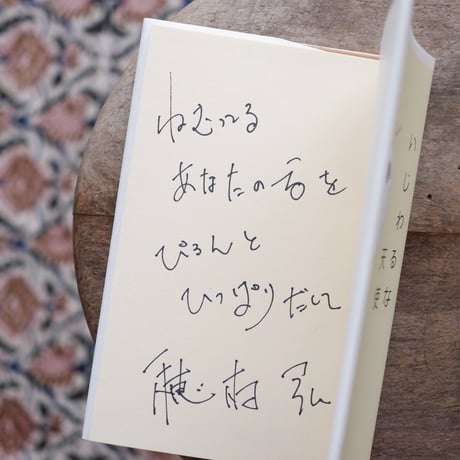 ねむってる
あなたの舌を
ぴろんと
ひっぱりだして
穂村 弘
いじわるな
天使